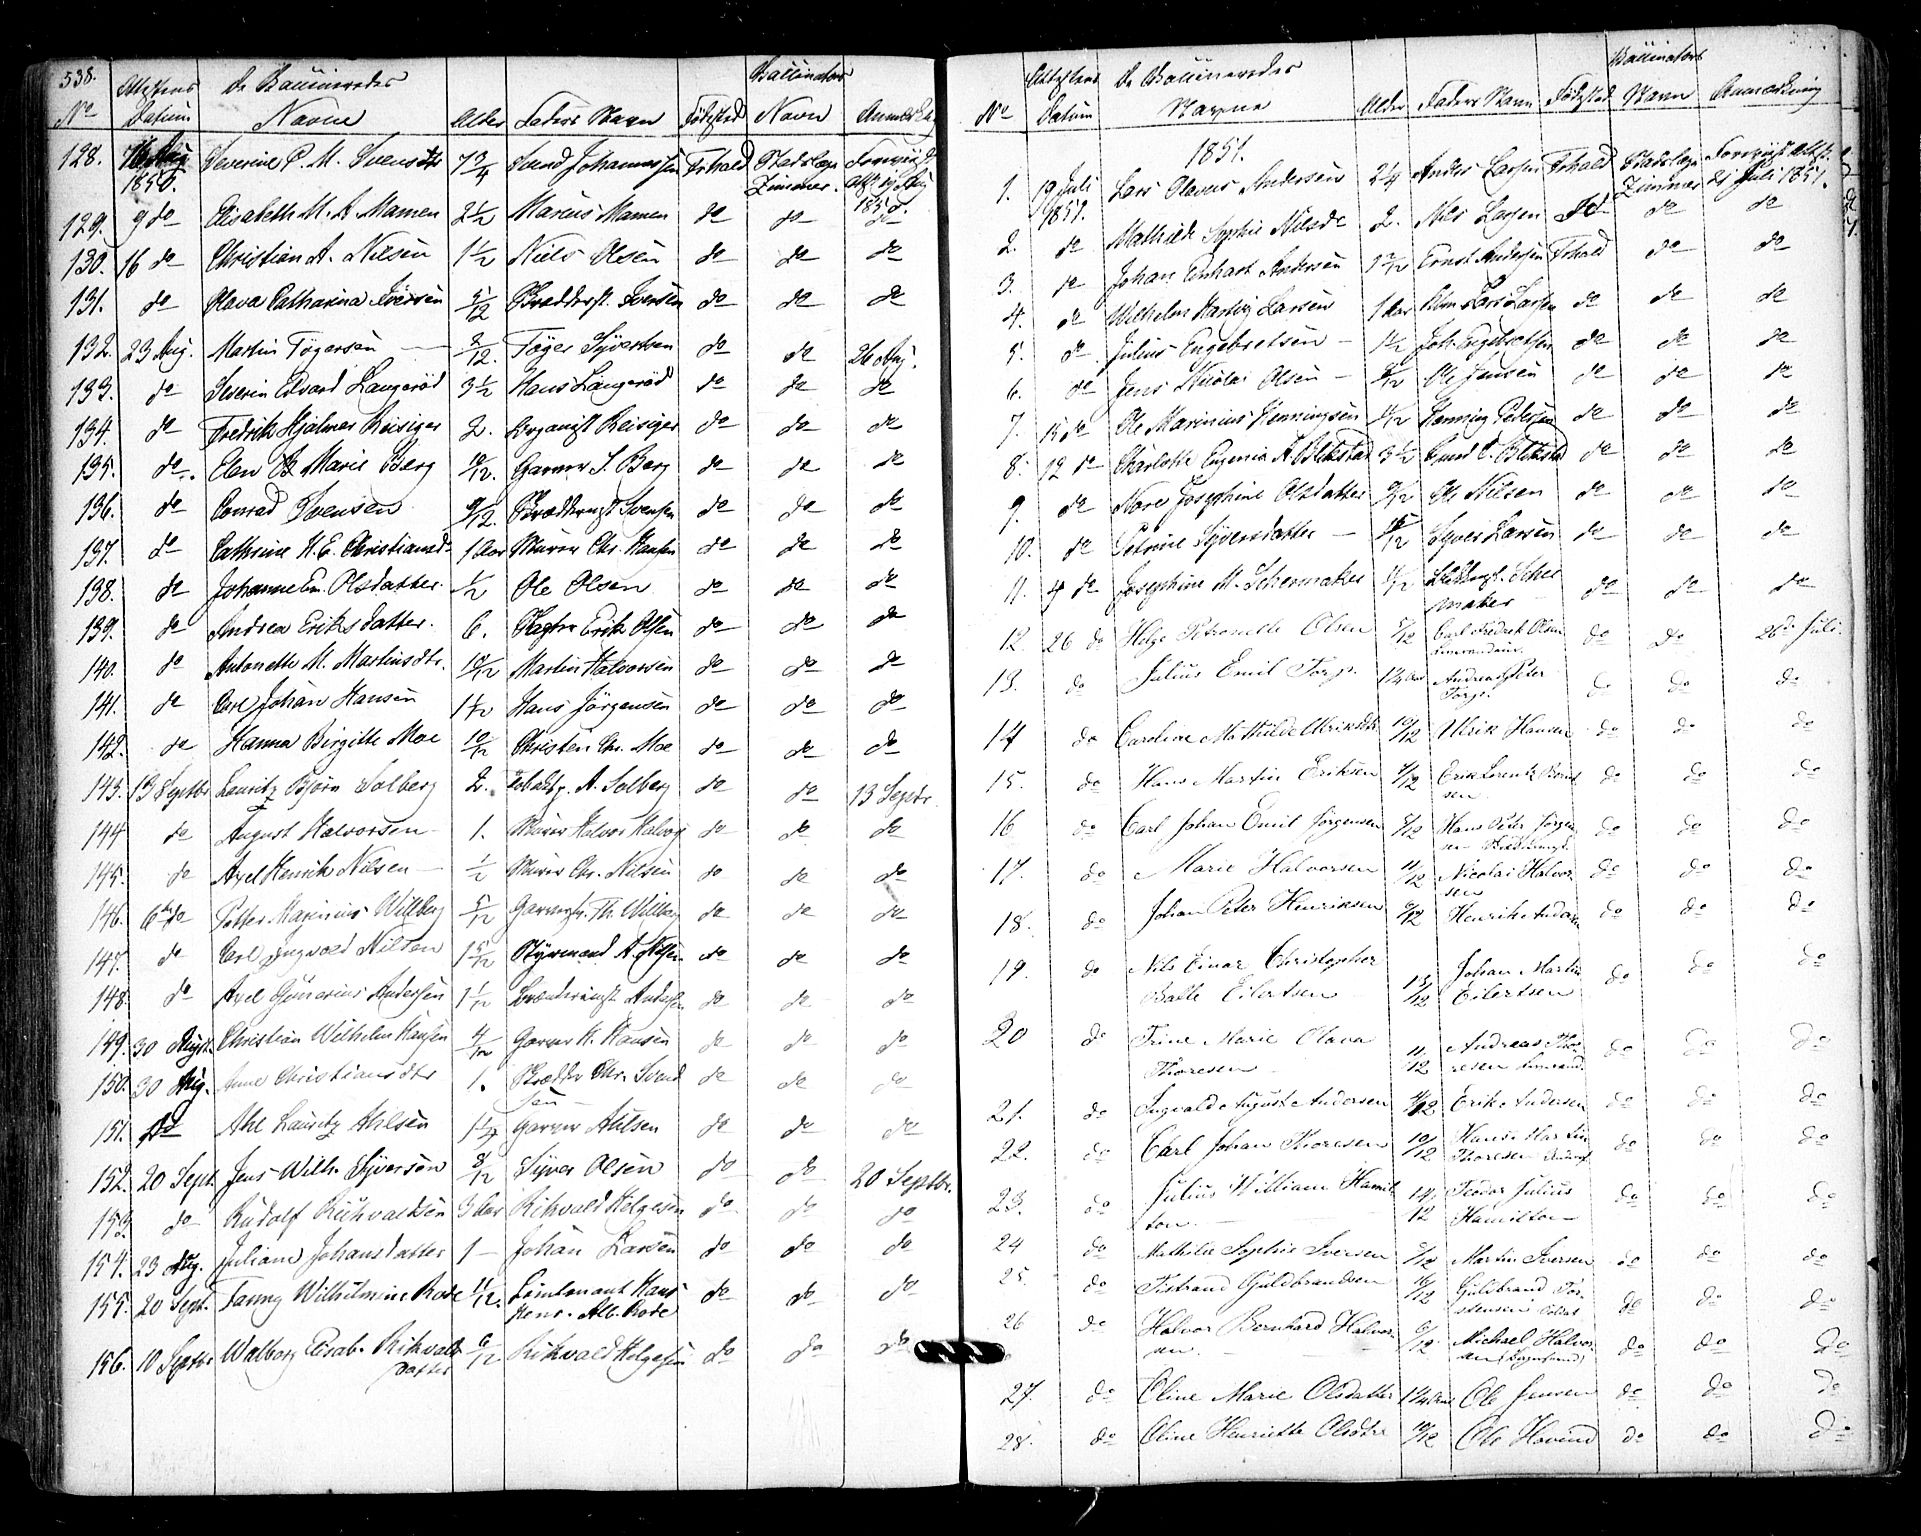 538.
Attestens De Vaccineredes Vaccinators
No Datum Navne Alder Faders Navn Fødested Navn Anmærkng
128. Aug 1850. Severine P. M. Svensdtr 7 3/4 Svend Johannessen Frhald Stadslæge Zimmer. 1850.
129. 9 do Elisabeth M. A. Mamen 2 1/2 Marcus Mamen do do do
130. 16 do Christian A. Nilsen 1 1/2 Niels Olsen do do do
131. do Olava Catharina Sversen 5/12 Svensen do do do
132. 23 Aug. Martin Tögersen — 8/12. Töger Syvertsen do do 26 Aug.
133. do Severin Edvard Langeröd 3 1/2 Hans Langeröd do do do
134. do Fredrik Hjalmer Reisiger 2. Organist Reisiger do do do
135. do Elen B. Marie Berg 10/12. Garver S. Berg do do do
136. do Conrad Svensen 9/12. Svensen do do do
137. do Cathrine H. E. Christiansd. 1 Aar Murer Chr. Hansen do do do
138. do Johanne Em. Olsdatter. 1/2 Ole Olsen do do do
139. do Andrea Eriksdatter. 6. Erik Olsen do do do
140. do Antonette M. Martinsdtr. 10/12 Martin Halvorsen do do do
141. do Carl Johan Hansen 1 1/2 Hans Jörgensen do do do
142. do Hanna Birgitte Moe 10/12 Christen Chr. Moe do do do
143. 13 Septbr Lauritz Björn Solberg 2. A. Solberg do do 13 Septr.
144 do August Halvorsen 1. Murer Halvor Halvors do do do
145. do Axel Henrik Nilsen — 1/2 Murer Chr. Nilsen do do do
146. 6te do Petter Marinius Willberg 5/12 Th. Wilberg do do do
147. do Carl Ingvald Nilsen 1 5/12 Styrmand A. Nilsen do do do
148 do Axel Gunerius Andersen 1 1/12 Andersen do do do
149. 30 Augst. Christian Wilhelm Hansen 4/12 Garver H. Hansen do do do
150. 30 Aug. Anne Christiansdtr 1. Chr. Svendsen do do do
151. do Ahl Lauritz Ahlsen 1 1/2 Garver Ahlsen do do do
152. 20 Sept. Jens Wilh. Syversen 8/12 Syver Olsen do do 20 Septbr.
153. do Rudolf Rikvaldsen 3 Aar Rikvald Helgesen do do do
154. 23 Aug. Juliane Johansdatter 1 — Johan Larsen do do do
155. 20 Sept. Fanny Wilhelmine Rode 11/12. Lieutenant Hans Henr. Alb. Rode do do do
156. 10 Septbr Walborg Elisab. Rikvalds datter 6/12 Rikvald Helgesen do do do
Attestens De Vaccineredes Vaccinators
No Datum Navne Alder Faders Navn Fødested Navn Anmærkning
1851.
1. 19 Juli 1851. Lars Olavus Andersen 2 1/4 Anders Larsen Frhald Stadslæge Zimmer 21 Juli 1851.
2. do Mathilde Sophie Nilsdr 2. Nils Larsen do do
3. do Johan Andersen Ernst Andersen Frhald do do
4. do Wilhelm Hartvig Larsen 1 Aar Lars Larsen do do do
5. do Julius Engebretsen — 1 1/2 Joh. Engebretsen do do do
6. do Jens Nicolai Olsen — Ole Jensen do do do
7. 15 do Ole Marinius Henningsen Henning Pedersen do do do
8. 12 do Charlotte Eugenia A. Blikstad 3 1/2 Blikstad do do do
9. do Nore Josephine Olsdatter 9/12 Ole Nilsen do do do
10. do Petrine Syversdatter — Syver Larsen do do do
11. 4 do Josephine M. Schermaker Scher maker do do do
12. 26 do Helge Petronelle Olsen 5/12 Carl Fredrik Olsen do do 26de Juli.
13. do Julius Emil Torp. Andreas Peter Torp. do do do
14 do Caroline Mathilde Ulriksdtr 10/12 Ulrik Hansen do do do
15. do Hans Martin Eriksen 9/12 Erik Lorentz sen do do do
16 do Carl Johan Emil Jörgensen 5/12 Hans Peter Jörgen sen do do do
17. do Marie Halvorsen 11/12 Nicolai Halvor sen do do do
18. do Johan Peter Henriksen 6/12 Henrik Anders do do do
19. do Nils Einar Christopher Balle Eilertsen 13/12 Johan Martin Eilertsen do do do
20 do Trine Marie Olava Thoresen 11/12 Andreas Tho resen do do do
21. do Ingvald August Andersen Erik Andersen do do do
22. do Carl Johan Thoresen 10/12 Hans Martin Thoresen do do do
23. do Julius William Hamil ton. 14/12 Teodor Julius Hamilton do do do
24 do Mathilde Sophie Iversen 9/12 Martin Iversen do do do
25. do Tistrand Guldbrandsen 16/12 Guldbrand Tor stensen do do do
26 do Halvor Bernhard Halvor sen. 9/12 Michael Halvor sen do do do
27. do Oline Marie Olsdatter 1 3/4 Aar Ole Jensen do do do
28. do Oline Henriette Olsdtr 10/12 Ole Hovind do do do